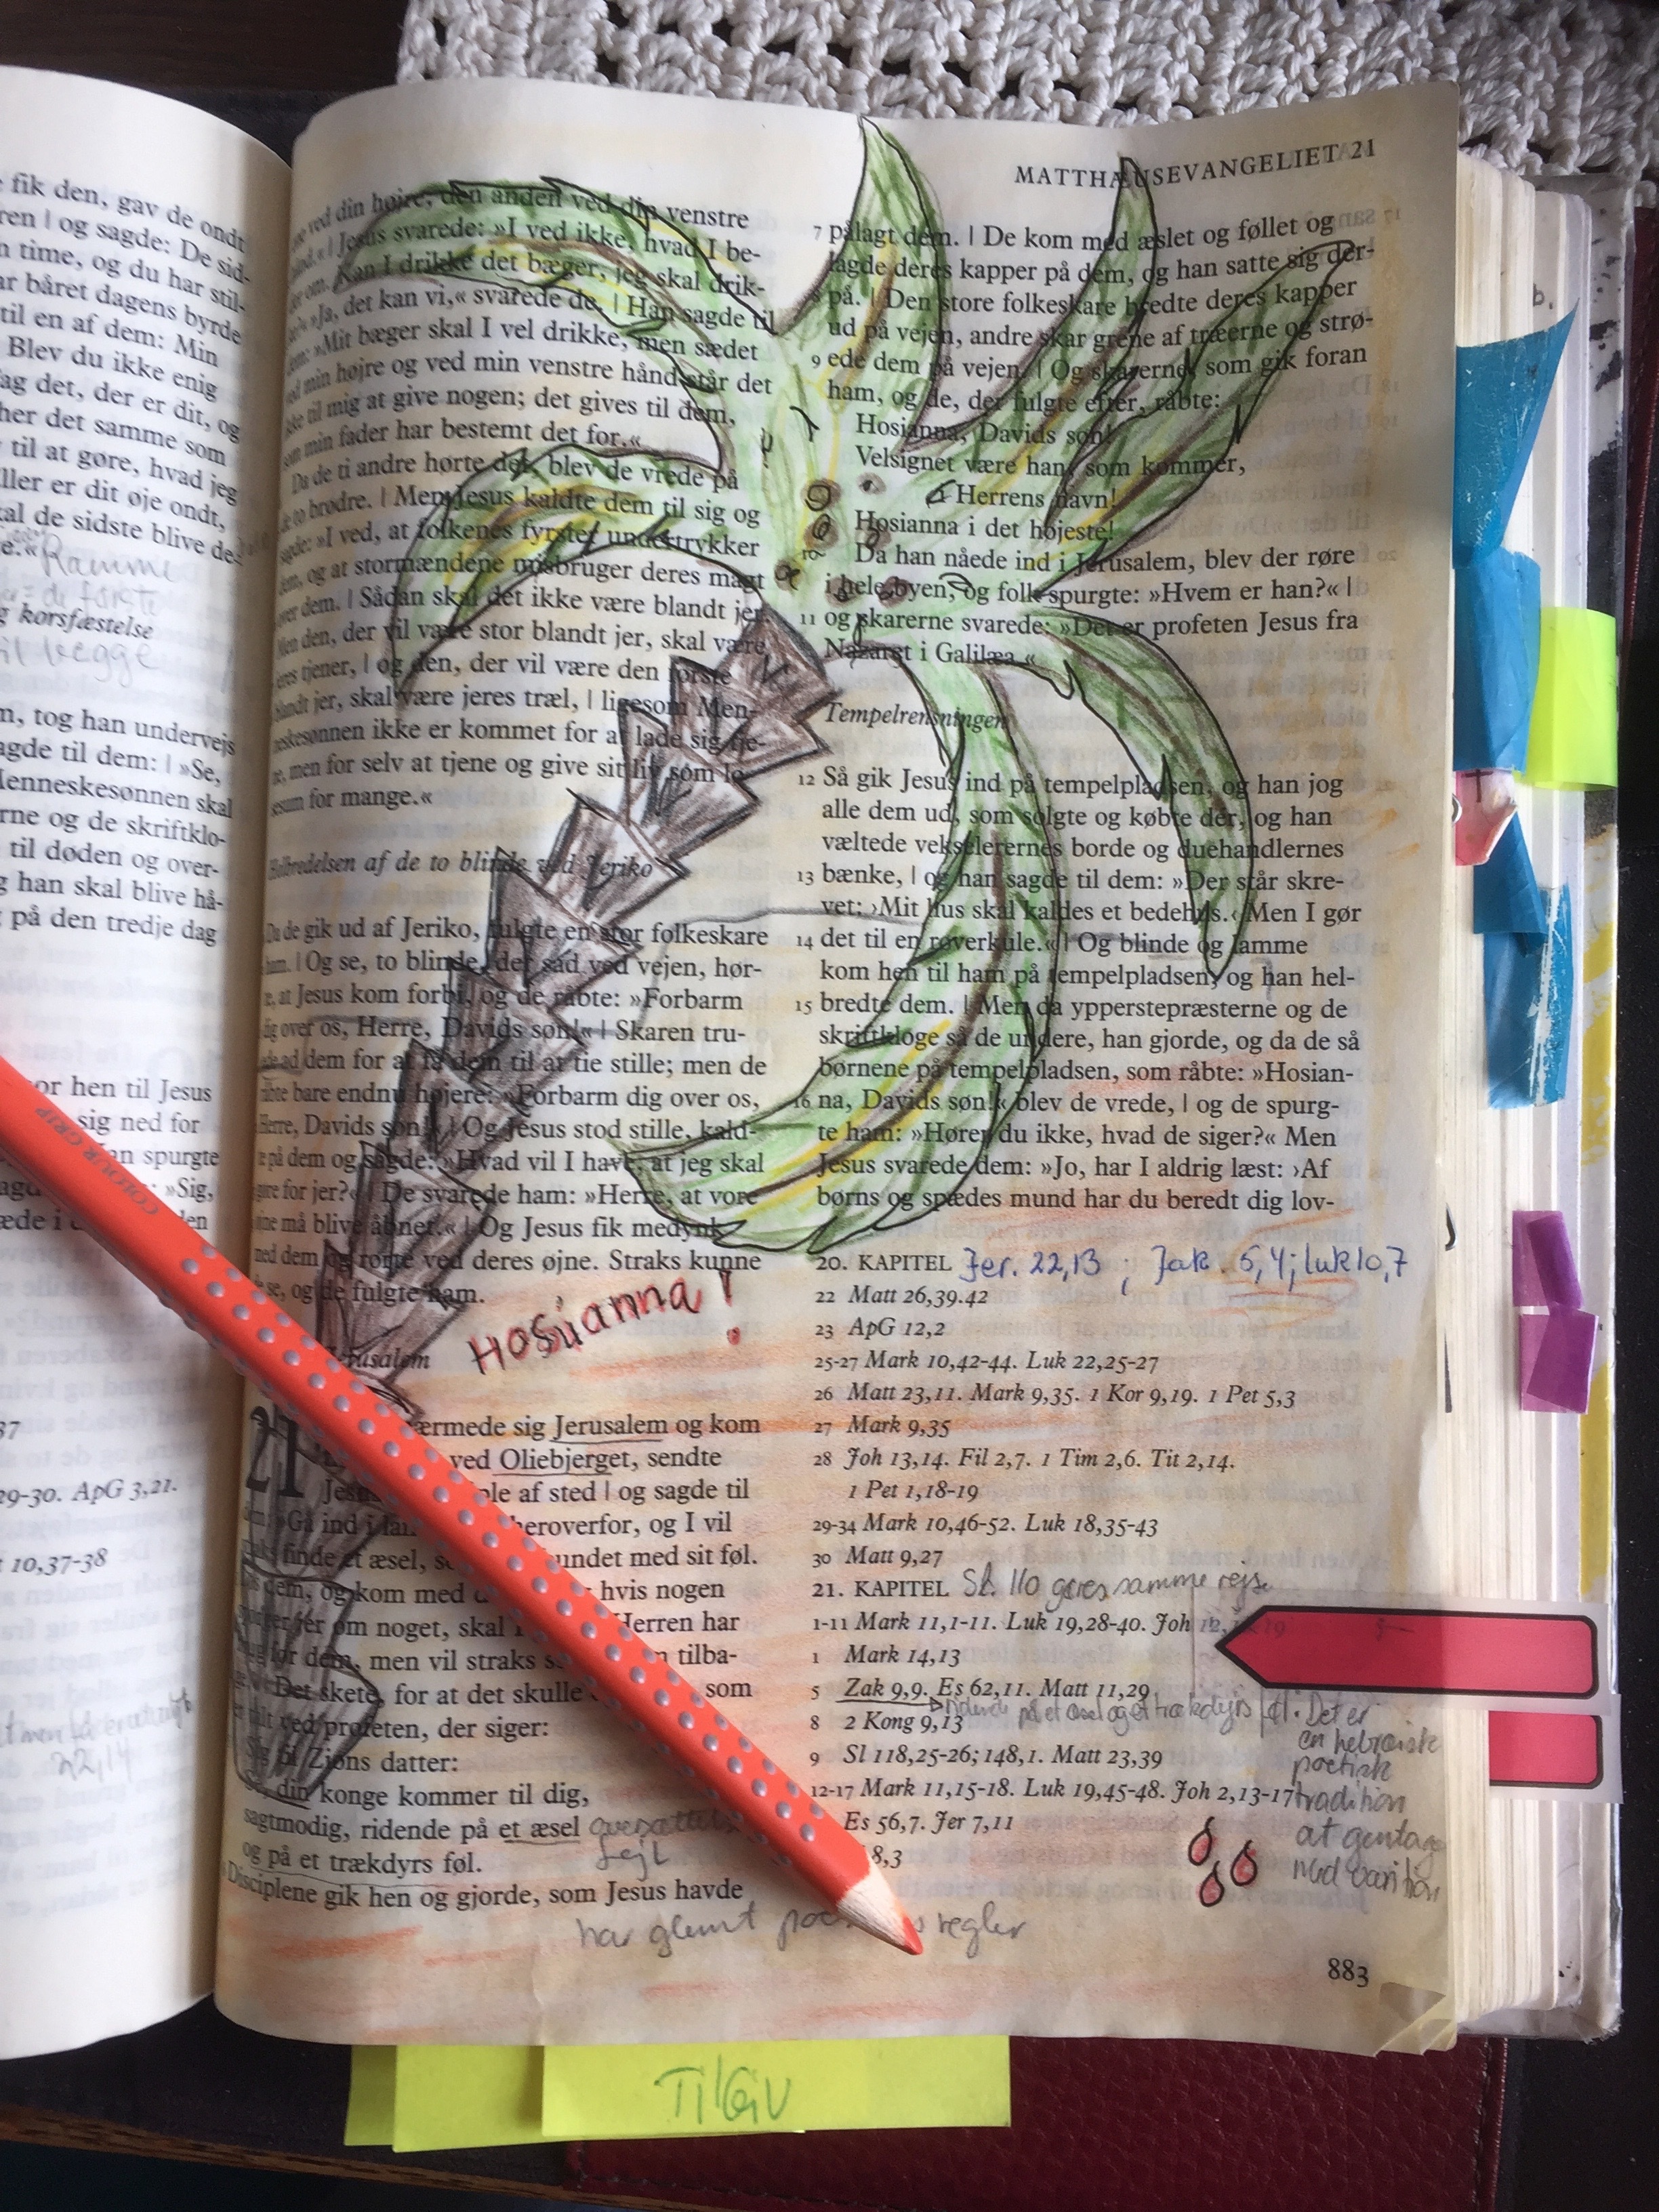 fik den, gav de ondt
og sagde: De sid-
time, og du har stil-
båret dagens byrde
til en af dem: Min
Blev du ikke enig
det, der er dit, og
her det samme som
til at gøre, hvad jeg
ller er dit øje ondt,
de sidste blive de
Ramme
de første
korsfæstelse
tog han undervejs
sagde til dem: | »Se,
Menneskesønnen skal
og de skriftklo-
til døden og over-
han skal blive hå-
på den tredje dag
hen til Jesus
sig ned for
spurgte
»Sig,
37
29-30. ApG 3,21.
10,37-38
22,14
ved din højre, den anden ved din venstre
| Jesus svarede: »I ved ikke, hvad I be-
om. Kan I drikke det bæger, jeg skal drik-
»Ja, det kan vi,« svarede de. | Han sagde til
dem: »Mit bæger skal I vel drikke, men sædet
ved min højre og ved min venstre hånd står det
ikke til mig at give nogen; det gives til dem,
som min fader har bestemt det for.«
Da de ti andre hørte det, blev de vrede på
de to brødre. | Men Jesus kaldte dem til sig og
sagde: »I ved, at folkenes fyrster undertrykker
dem, og at stormændene misbruger deres magt
over dem. | Sådan skal det ikke være blandt jer.
Men den, der vil være stor blandt jer, skal være
jeres tjener, | og den, der vil være den første
blandt jer, skal være jeres træl, | ligesom Men-
neskesønnen ikke er kommet for at lade sig tje-
ne, men for selv at tjene og give sit liv som lø-
sesum for mange.«
Helbredelsen af de to blinde ved Jeriko
Da de gik ud af Jeriko, fulgte en stor folkeskare
ham. | Og se, to blinde, der sad ved vejen, hør-
te, at Jesus kom forbi, og de råbte: »Forbarm
dig over os, Herre, Davids søn!« | Skaren tru-
ede ad dem for at få dem til at tie stille; men de
råbte bare endnu højere: »Forbarm dig over os,
Herre, Davids søn!« | Og Jesus stod stille, kald-
te på dem og sagde: »Hvad vil I have, at jeg skal
gøre for jer?« | De svarede ham: »Herre, at vore
øjne må blive åbnet.« | Og Jesus fik medynk
med dem og rørte ved deres øjne. Straks kunne
de se, og de fulgte ham.
Hosianna!
Jerusalem
21
nærmede sig Jerusalem og kom
ved Oliebjerget, sendte
Jesus af sted | og sagde til
dem: »Gå ind i heroverfor, og I vil
straks finde et æsel, bundet med sit føl.
dem, og kom med hvis nogen
jer om noget, skal I Herren har
brug for dem, men vil straks tilba-
Det skete, for at det skulle som
er talt ved profeten, der siger:
Sig til Zions datter:
Se, din konge kommer til dig,
sagtmodig, ridende på et æsel
fejl
og på et trækdyrs føl.
Disciplene gik hen og gjorde, som Jesus havde
har glemt regler
MATTHÆUSEVANGELIET 21
7 pålagt dem. | De kom med æslet og føllet og
lagde deres kapper på dem, og han satte sig der-
8 på. | Den store folkeskare bredte deres kapper
ud på vejen, andre skar grene af træerne og strø-
9 ede dem på vejen. | Og skarerne, som gik foran
ham, og de, der fulgte efter, råbte:
Hosianna, Davids søn!
Velsignet være han, som kommer,
i Herrens navn!
Hosianna i det højeste!
10 Da han nåede ind i Jerusalem, blev der røre
i hele byen, og folk spurgte: »Hvem er han?« |
11 og skarerne svarede: »Det er profeten Jesus fra
Nazaret i Galilæa.«
Tempelrensningen
12 Så gik Jesus ind på tempelpladsen, og han jog
alle dem ud, som solgte og købte dér, og han
væltede vekselerernes borde og duehandlernes
13 bænke, | og han sagde til dem: »Der står skre-
vet: ›Mit hus skal kaldes et bedehus.‹ Men I gør
14 det til en røverkule.« | Og blinde og lamme
kom hen til ham på tempelpladsen, og han hel-
15 bredte dem. | Men da ypperstepræsterne og de
skriftkloge så de undere, han gjorde, og da de så
børnene på tempelpladsen, som råbte: »Hosian-
16 na, Davids søn!« blev de vrede, | og de spurg-
te ham: »Hører du ikke, hvad de siger?« Men
Jesus svarede dem: »Jo, har I aldrig læst: ›Af
børns og spædes mund har du beredt dig lov-
20. KAPITEL Jer. 22,13 ; Jak. 5,4; luk 10,7
22 Matt 26,39.42
23 ApG 12,2
25-27 Mark 10,42-44. Luk 22,25-27
26 Matt 23,11. Mark 9,35. 1 Kor 9,19. 1 Pet 5,3
27 Mark 9,35
28 Joh 13,14. Fil 2,7. 1 Tim 2,6. Tit 2,14.
1 Pet 1,18-19
29-34 Mark 10,46-52. Luk 18,35-43
30 Matt 9,27
21. KAPITEL Sl. 110 samme rejse
1-11 Mark 11,1-11. Luk 19,28-40. Joh 12,
1 Mark 14,13
5 Zak 9,9. Es 62,11. Matt 11,29
ridende på et æsel og et trækdyrs føl. Det er
8 2 Kong 9,13
en hebraiske
poetisk
9 Sl 118,25-26; 148,1. Matt 23,39
12-17 Mark 11,15-18. Luk 19,45-48. Joh 2,13-17
tradition
Es 56,7. Jer 7,11
at gentage
8,3
med variation
883
COLOUR GRIP
Tilgiv